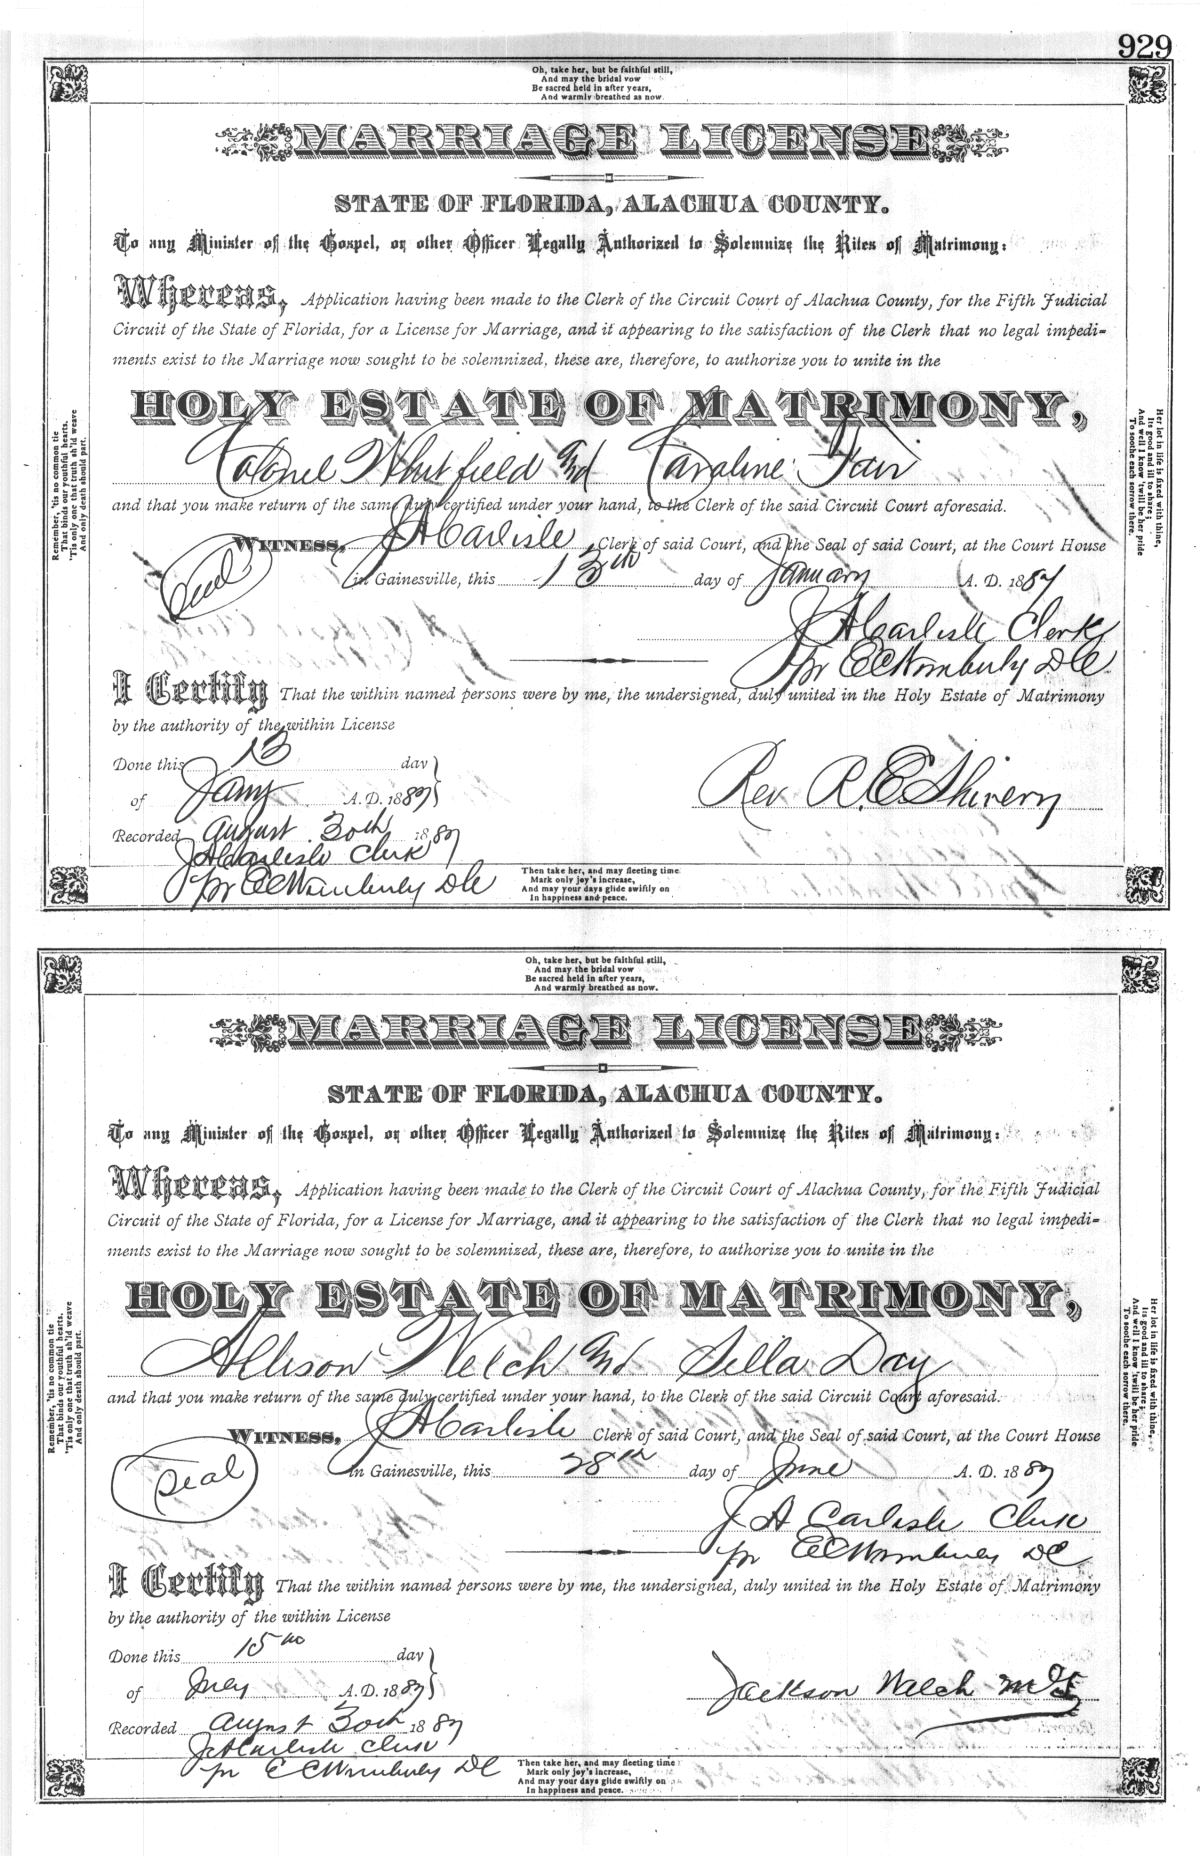 929
Oh, take her, but be faithful still,
And may the bridal vow
Be sacred held in after years,
And warmly breathed as now.
MARRIAGE LICENSE
STATE OF FLORIDA, ALACHUA COUNTY.
To any Minister of the Gospel, or other Officer Legally Authorized to Solemnize the Rites of Matrimony:
Whereas, Application having been made to the Clerk of the Circuit Court of Alachua County, for the Fifth Judicial
Circuit of the State of Florida, for a License for Marriage, and it appearing to the satisfaction of the Clerk that no legal impedi-
ments exist to the Marriage now sought to be solemnized, these are, therefore, to authorize you to unite in the
HOLY ESTATE OF MATRIMONY,
Colonel Whitfield And Caroline Fair
and that you make return of the same duly certified under your hand, to the Clerk of the said Circuit Court aforesaid.
WITNESS, J A Carlisle Clerk of said Court, and the Seal of said Court, at the Court House
Seal in Gainesville, this 13th day of January A. D. 1887
J A Carlisle Clerk
pr E C Wimberly D C
I Certify That the within named persons were by me, the undersigned, duly united in the Holy Estate of Matrimony
by the authority of the within License
Done this 13 day
of Jany A. D. 1887
Rev R. E. Shivery
Recorded August 30th 1887
J A Carlisle Clerk
pr E C Wimberly D C
Then take her, and may fleeting time
Mark only joy's increase,
And may your days glide swiftly on
In happiness and peace.
Remember, 'tis no common tie
That binds our youthful hearts.
'Tis only one that truth sh'ld weave
And only death should part.
Her lot in life is fixed with thine,
Its good and ill to share;
And well I know 'twill be her pride
To soothe each sorrow there.
Oh, take her, but be faithful still,
And may the bridal vow
Be sacred held in after years,
And warmly breathed as now.
MARRIAGE LICENSE
STATE OF FLORIDA, ALACHUA COUNTY.
To any Minister of the Gospel, or other Officer Legally Authorized to Solemnize the Rites of Matrimony:
Whereas, Application having been made to the Clerk of the Circuit Court of Alachua County, for the Fifth Judicial
Circuit of the State of Florida, for a License for Marriage, and it appearing to the satisfaction of the Clerk that no legal impedi-
ments exist to the Marriage now sought to be solemnized, these are, therefore, to authorize you to unite in the
HOLY ESTATE OF MATRIMONY,
Allison Welch And Silla Day
and that you make return of the same duly certified under your hand, to the Clerk of the said Circuit Court aforesaid.
WITNESS, J A Carlisle Clerk of said Court, and the Seal of said Court, at the Court House
Seal in Gainesville, this 28th day of June A. D. 1887
J A Carlisle Clerk
pr E C Wimberly D C
I Certify That the within named persons were by me, the undersigned, duly united in the Holy Estate of Matrimony
by the authority of the within License
Done this 15th day
of July A. D. 1887
Jackson Welch
Recorded August 30th 1887
J A Carlisle Clerk
pr E C Wimberly D C
Then take her, and may fleeting time
Mark only joy's increase,
And may your days glide swiftly on
In happiness and peace.
Remember, 'tis no common tie
That binds our youthful hearts.
'Tis only one that truth sh'ld weave
And only death should part.
Her lot in life is fixed with thine,
Its good and ill to share;
And well I know 'twill be her pride
To soothe each sorrow there.